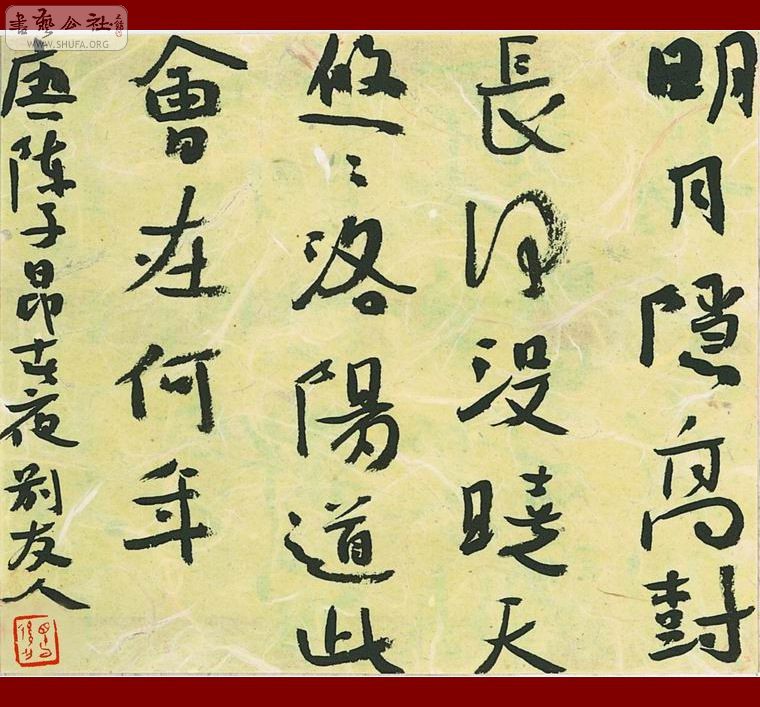 書藝公社
WWW.SHUFA.ORG
明月隱高尌
長河沒曉天
悠〻洛陽道此
會在何年
唐陈子昂春夜别友人